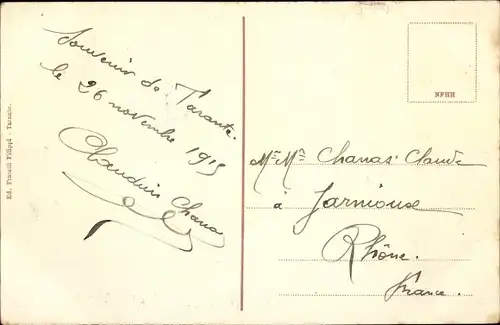 Souvenir de Tarante.
le 26 novembre 1915
Claudius Chanas
Ed. Fratelli Filippi - Taranto.
NPHH
Mr Me Chanas Claude
à Jarnioux
Rhône.
France.